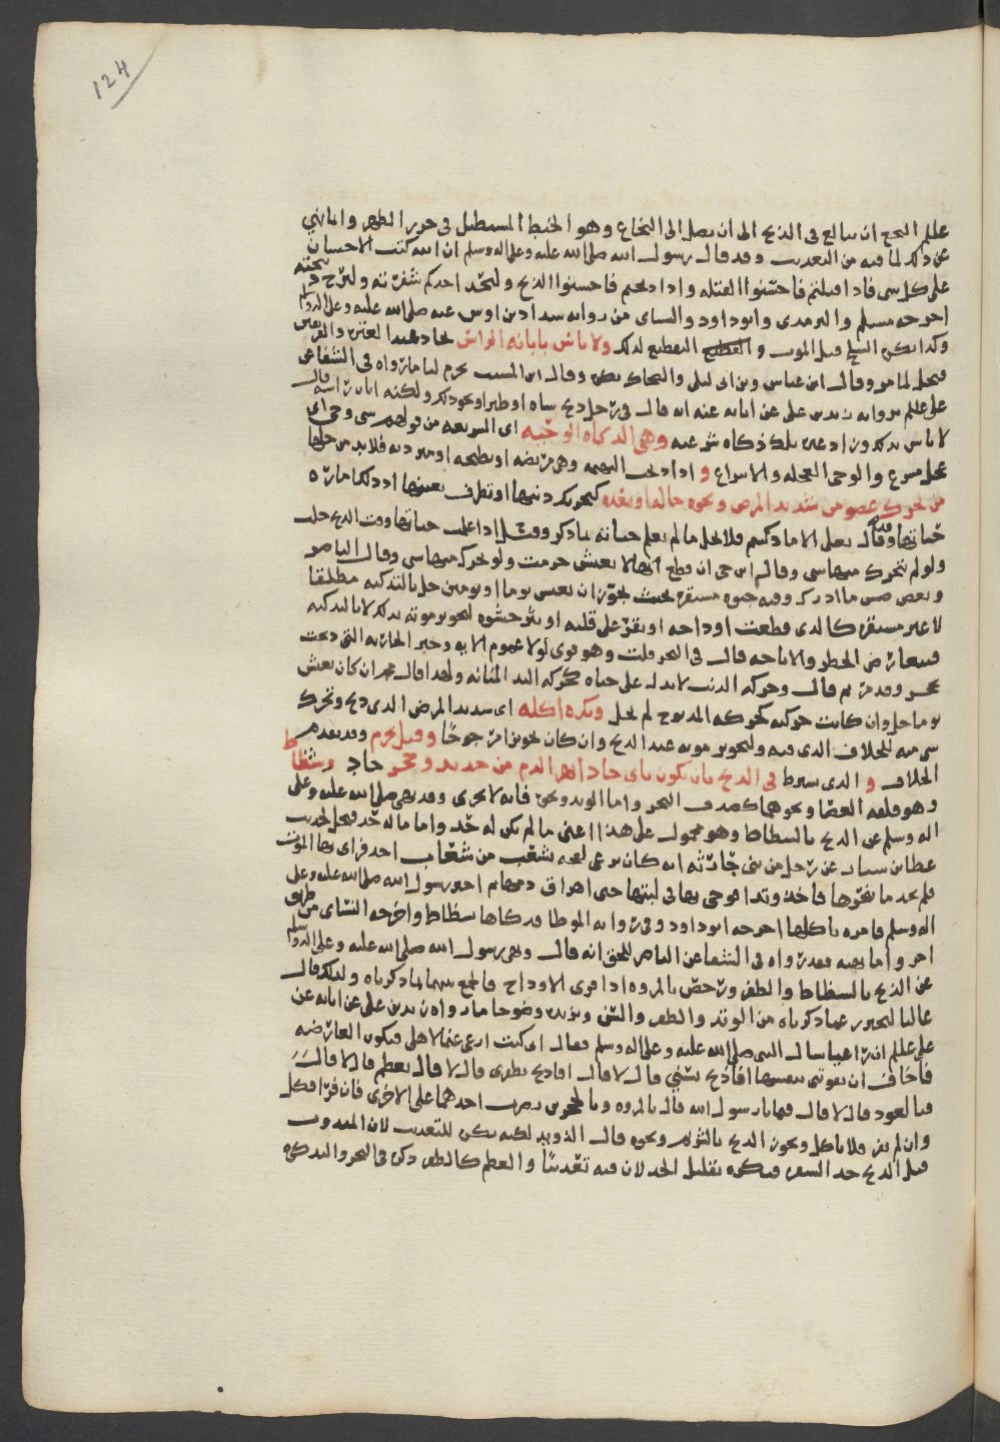 124
عللم النخع ان يبالغ فى الذبح الى ان يصل الى النخاع وهو الخيط المستطيل فى خرز الظهر وانما نهي
عن ذلك لما فيه من التعذيب وقد قال رسول الله صلى الله عليه وعلى اله وسلم ان الله كتب الاحسان
على كل شى فاذا قتلتم فاحسنوا القتله واذا ذبحتم فاحسنوا الذبح وليحد احدكم شفرته وليرح ذبيحته
اخرجه مسلم والترمذى وابو داود والنساى من روايه شداد بن اوس عنه صلى الله عليه وعلى اله وسلم
وكذا يكره السلخ قبل الموت و التقطيع لذلك ولا باس بابانه الراس
فيحل لما مر وقال ابن عباس وبن ابى ليلى والضحاك يكره وقال ابن المسيب يحرم لنا ما رواه فى الشفا عن
على عللم بروايه زيد بن على عن ابايه عنه انه قال فى رجل ذبح شاه او طيرا او نحو ذلك ولكنه ابان راسه قال
لا باس بذلك تلك ذكاه شرعيه وهى الذكاه الوحيه اى السريعه من قولهم شى وحى اى
عجل مسرع والوحى العجله والاسراع و اذا ذبحت البهيمه وهى مريضه او نطيحه او مترديه فلا بد من
من تحرك عضو من شديد المرض ونحوه حاله او بعده كتحريك ذنبها او تطرف بعينها اذ ذلك اماره
حياتها وقد قال تعلى الا ما ذكيتم فلا يحل ما لم يعلم حياته بما ذكر وقيل اذا علمت حياتها وقت الذبح حلت
ولو لم يتحرك منها شى وقال ابن حى ان قطع انها لا تعيش حرمت ولو تحرك منها شى وقال الناصر
وبعض صش ما ادرك وفيه حيوه مستقره بحيث يجوز ان تعيش يوما او يومين حل بالتذكيه مطلقا
لا غير مستقره كالذى قطعت اوداجه او بقر على قلبه او نثر حشوه لتجويز موته بذلك لا بالتذكيه
فيعارض الحظر والاباحه قال فى البحر قلت وهو قوى لولا عموم الايه وخبر الجاريه التى ذبحت
بحجر وقد مر ثم قال وحركه الذنب لا يدل على حياه كحركه اليد المبانه ولهذا قال محمد ان كان يعيش
يوما حل وان كانت حركته كحركه المذبوح لم يحل ويكره اكله اى شديد المرض الذى ذبح وتحرك
شى منه للخلاف الذى فيه ولتجويز موته عند الذبح وان كان تجويزا مرجوحًا وقيل يحرم وقد تقدم
الخلاف و الذى يشرط فى الذبح بان يكون باى حاد انهر الدم من حديد وحجر حاد وشظاظ
وهو فلقه العصا ونحوهما كصدف البحر واما الوتد ونحوه فانه لا يجزى وقد نهى صلى الله عليه وعلى
اله وسلم عن الذبح بالشظاظ وهو محمول على هذا اعنى ما لم يكن له حد واما ما له حد فيحل لحديث
عطا بن يسار عن رجل من بنى حارثه انه كان يرعى لقحه بشعب من شعاب احد فراى بها الموت
فلم يجد ما ينحرها فاخذ وتدا فوجى بها فى لبتها حتى اهراق دمها ثم اخبر رسول الله صلى الله عليه وعلى
اله وسلم فامره باكلها اخرجه ابو داود وفى روايه الموطا فذكاها بشظاظ واخرجه النساى من طريق
اخر واما نهيه فقد رواه فى الشفا عن الناصر للحق انه قال ونهى رسول الله صلى الله عليه وعلى اله وسلم
عن الذبح بالشظاظ والظفر ورخص بالمروه اذا فرى الاوداج فالجمع بينهما بما ذكرناه ولذلك قال
غالبا ليحترز عما ذكرناه من الوتد والظفر والسن ويزيده وضوحا ما رواه زيد بن على عن ابايه عن
على عللم ان راعيا سال النبى صلى الله عليه وعلى اله وسلم فقال انى كنت ارعى غنما لاهلى فيكون العارضه
فاخاف ان تفوتنى بنفسها افاذبح بسنى قال لا قال افاذبح بظفرى قال لا قال بعظم قال لا قال
فبالعود قال لا قال فبما يا رسول الله قال بالمروه وبالحجرين يضرب احدهما على الاخرى فان فرا فكل
وان لم يفر فلا تاكل ويجوز الذبح بالشريم ونحوه قال الدوير لكنه يكره للتعذيب لان المندوب
قبل الذبح حد الشفره فيكره بقليل الحد لان فيه تعذيبًا والعظم كالظفر ذكره فى البحر والتذكره